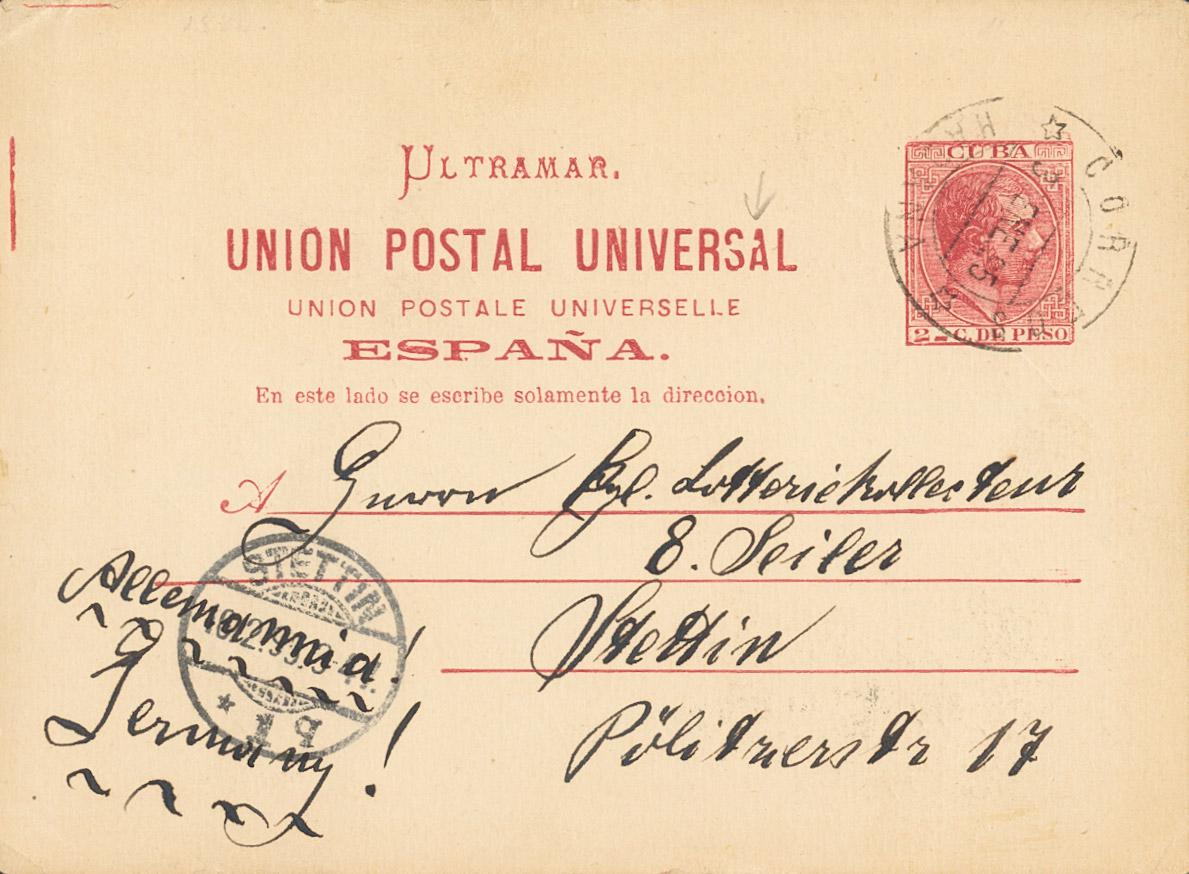 ULTRAMAR.
CUBA
UNION POSTAL UNIVERSAL
UNION POSTALE UNIVERSELLE
ESPAÑA.
2 C. DE PESO
CORREOS
HABANA
En este lado se escribe solamente la direccion.
A Herrn Kgl. Lotteriekollecteur
E. Seiler
Stettin
Pölitzerstr 17
STETTIN
Allemannia!
Germany!